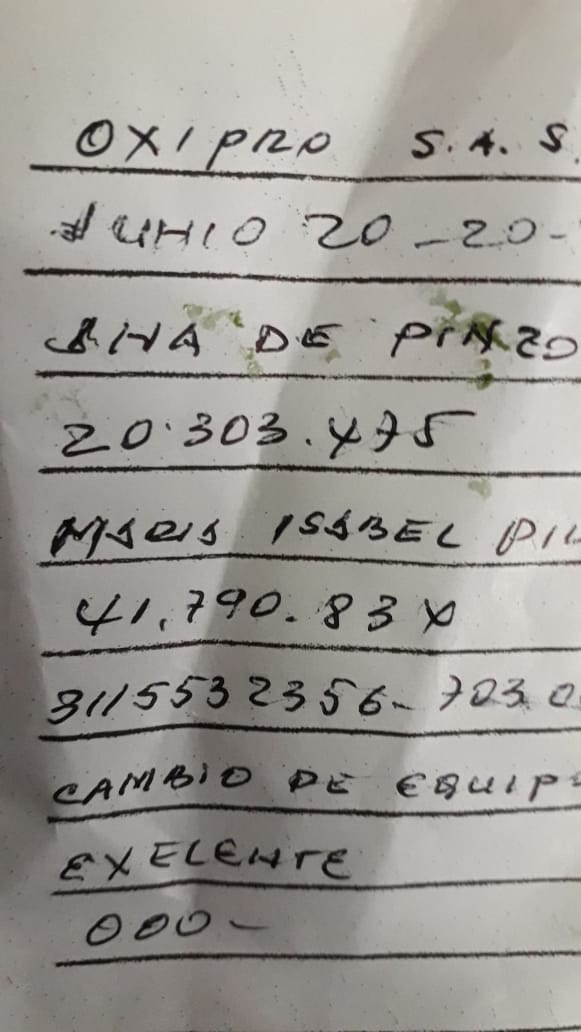 OXIPRO S.A.S.
JUNIO 20-20-
ANA DE PINZO
20.303.475
MARIA ISABEL PIN
41.790.834
3115532356-7030
CAMBIO DE EQUIPO
EXELENTE
000-